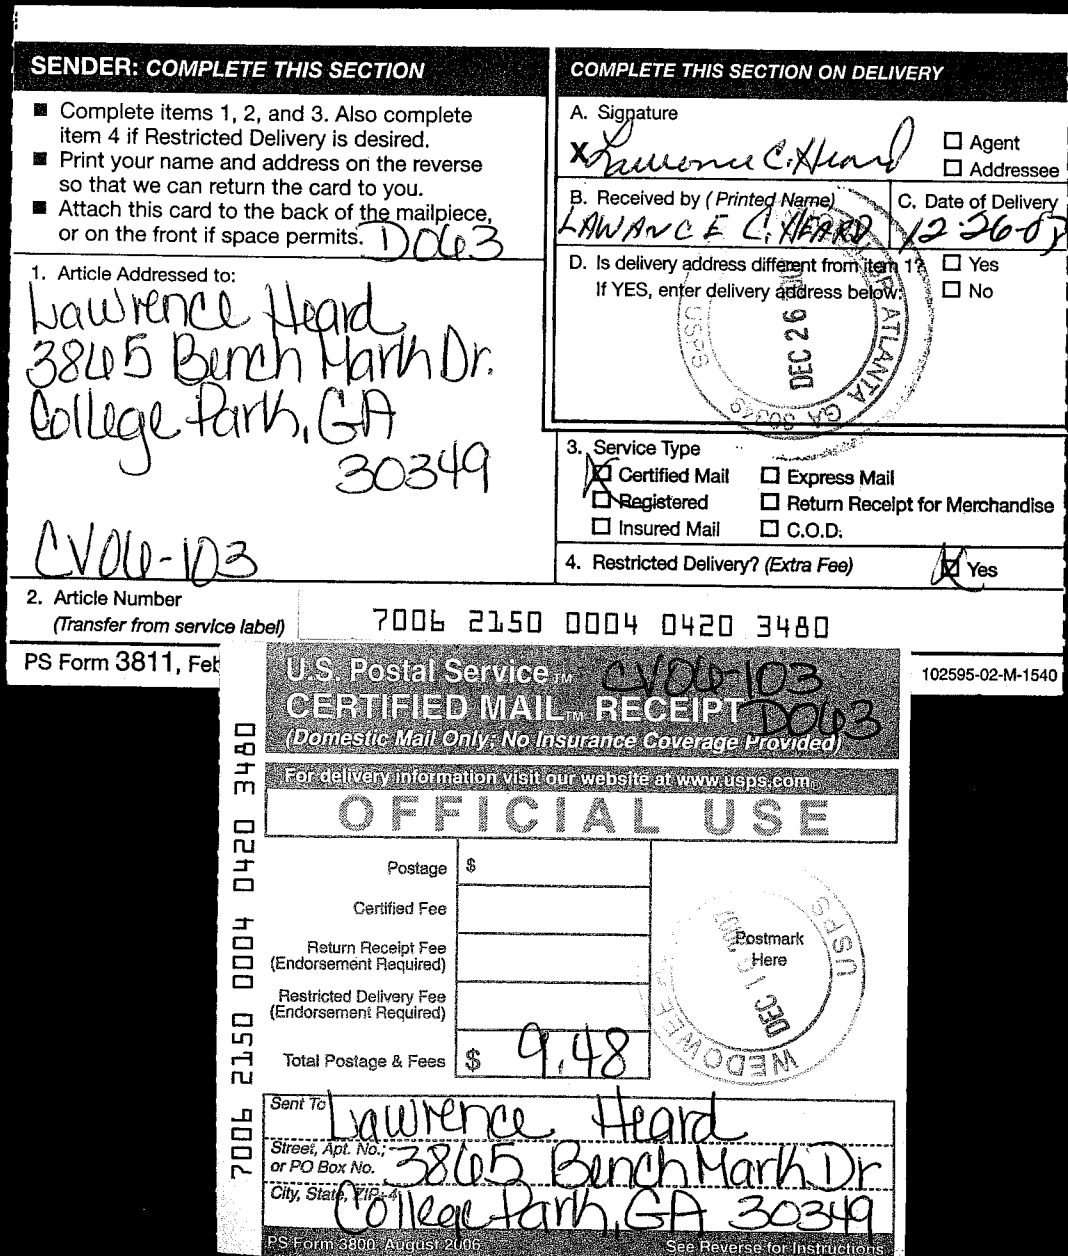 SENDER: COMPLETE THIS SECTION
■ Complete items 1, 2, and 3. Also complete
item 4 if Restricted Delivery is desired.
■ Print your name and address on the reverse
so that we can return the card to you.
■ Attach this card to the back of the mailpiece,
or on the front if space permits. D063
1. Article Addressed to:
Lawrence Heard
3865 Bench Mark Dr.
College Park, GA
30349
CV06-103
2. Article Number
(Transfer from service label)
7006 2150 0004 0420 3480
PS Form 3811, Feb
102595-02-M-1540
COMPLETE THIS SECTION ON DELIVERY
A. Signature
X Lawrence C. Heard
☐ Agent
☐ Addressee
B. Received by (Printed Name)
LAWANCE C. HEARD
C. Date of Delivery
12-26-07
D. Is delivery address different from item 1? ☐ Yes
If YES, enter delivery address below: ☐ No
USPS
DEC 26
ATLANTA GA 30349
3. Service Type
☒ Certified Mail ☐ Express Mail
☐ Registered ☐ Return Receipt for Merchandise
☐ Insured Mail ☐ C.O.D.
4. Restricted Delivery? (Extra Fee) ☒ Yes
U.S. Postal Service™ CV06-103
CERTIFIED MAIL™ RECEIPT D063
(Domestic Mail Only; No Insurance Coverage Provided)
For delivery information visit our website at www.usps.com®
OFFICIAL USE
7006 2150 0004 0420 3480
Postage $
Certified Fee
Return Receipt Fee
(Endorsement Required)
Restricted Delivery Fee
(Endorsement Required)
Total Postage & Fees $ 9.48
Postmark
Here
WEDOWEE
USPS
DEC 19 2007
Sent To Lawrence Heard
Street, Apt. No.;
or PO Box No. 3865 Bench Mark Dr
City, State, ZIP+4 College Park, GA 30349
PS Form 3800, August 2006 See Reverse for Instructions